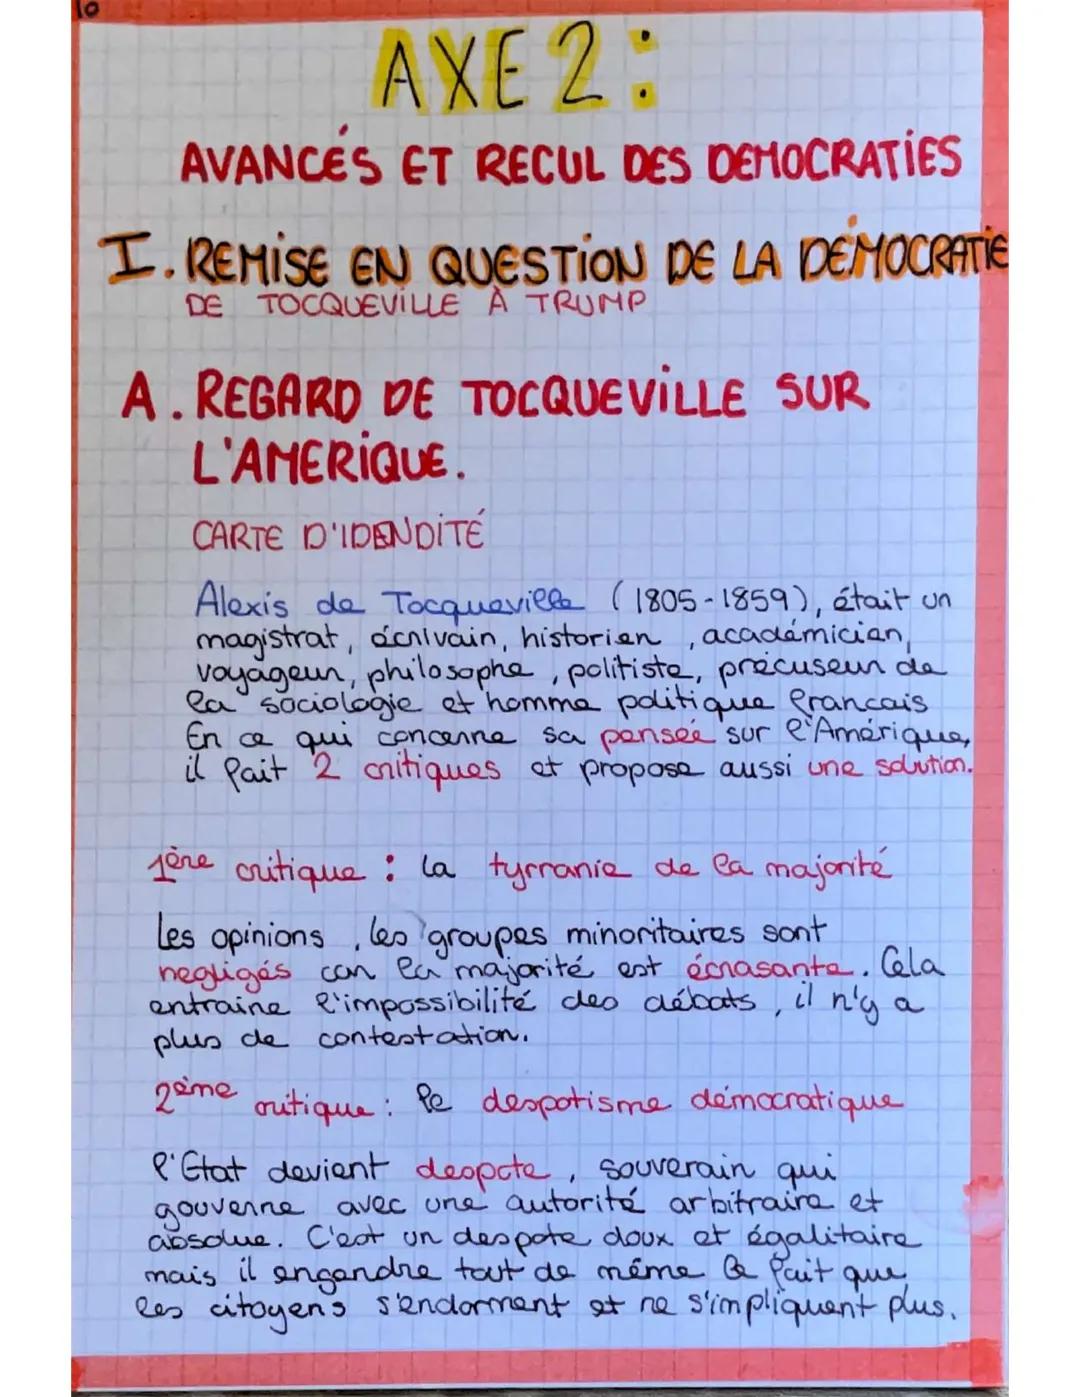 10
AXE 2 :
AVANCÉS ET RECUL DES DEMOCRATIES
I. REMISE EN QUESTION DE LA DÉMOCRATIE
DE TOCQUEVILLE À TRUMP
A. REGARD DE TOCQUEVILLE SUR
L'AMERIQUE.
CARTE D'IDENDITÉ
Alexis de Tocqueville (1805-1859), était un
magistrat, écrivain, historien, académicien,
voyageur, philosophe, politiste, précuseur de
la sociologie et homme politique francais
En ce qui concerne sa pensée sur l'Amérique,
il fait 2 critiques et propose aussi une solution.
1ère critique : la tyrranie de la majorité
Les opinions, les groupes minoritaires sont
negligés car la majorité est écrasante. Cela
entraine l'impossibilité des débats, il n'y a
plus de contestation.
2ème critique : le despotisme démocratique
l'Etat devient despote, souverain qui
gouverne avec une autorité arbitraire et
absolue. C'est un despote doux et égalitaire
mais il engendre tout de même le fait que
les citoyens s'endorment et ne s'impliquent plus.